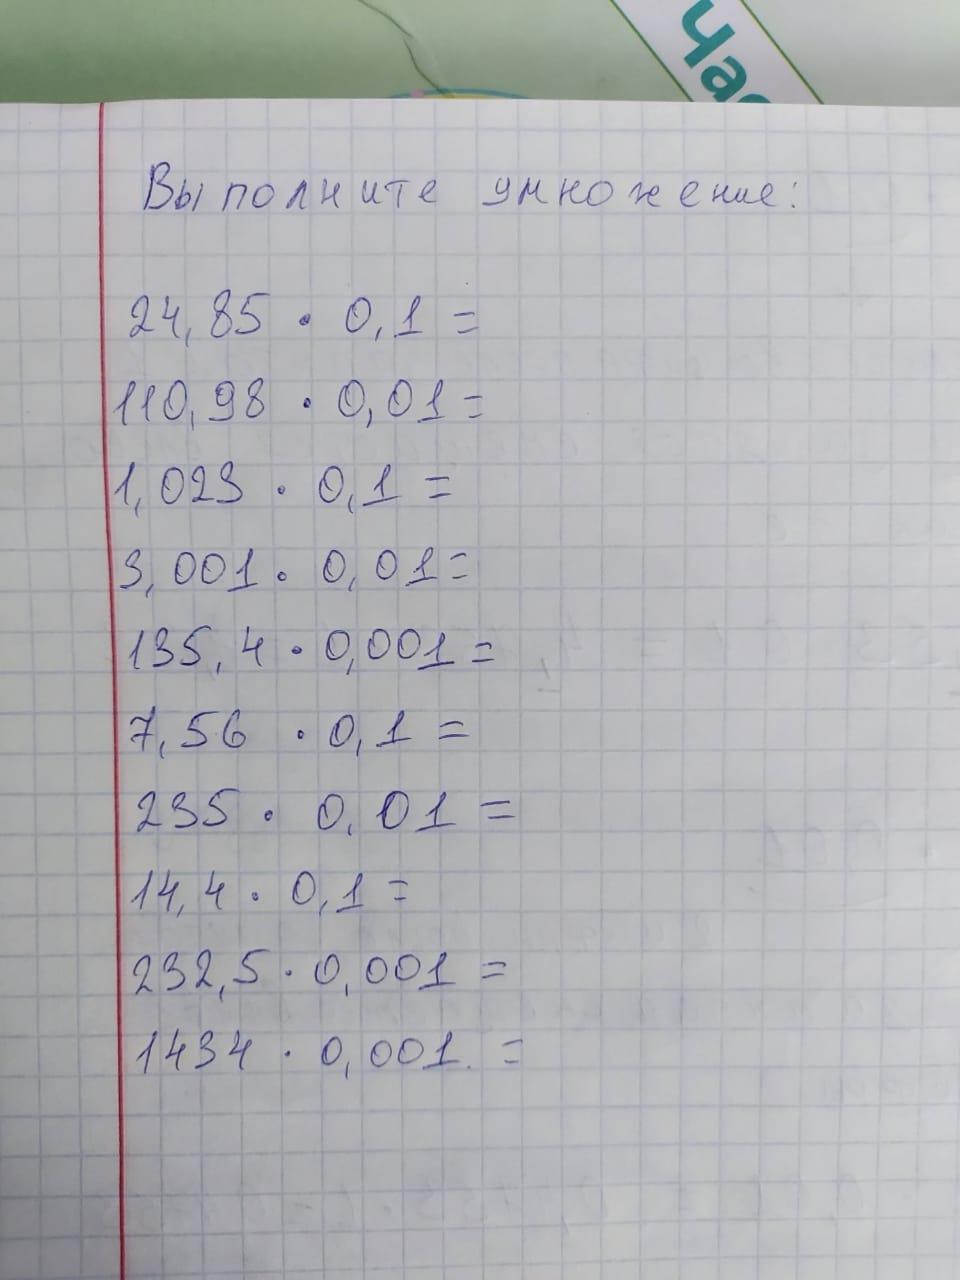 Час
Выполните умножение:
24,85 · 0,1 =
110,98 · 0,01 =
1,023 · 0,1 =
3,001 · 0,01 =
135,4 · 0,001 =
7,56 · 0,1 =
235 · 0,01 =
14,4 · 0,1 =
232,5 · 0,001 =
1434 · 0,001 =